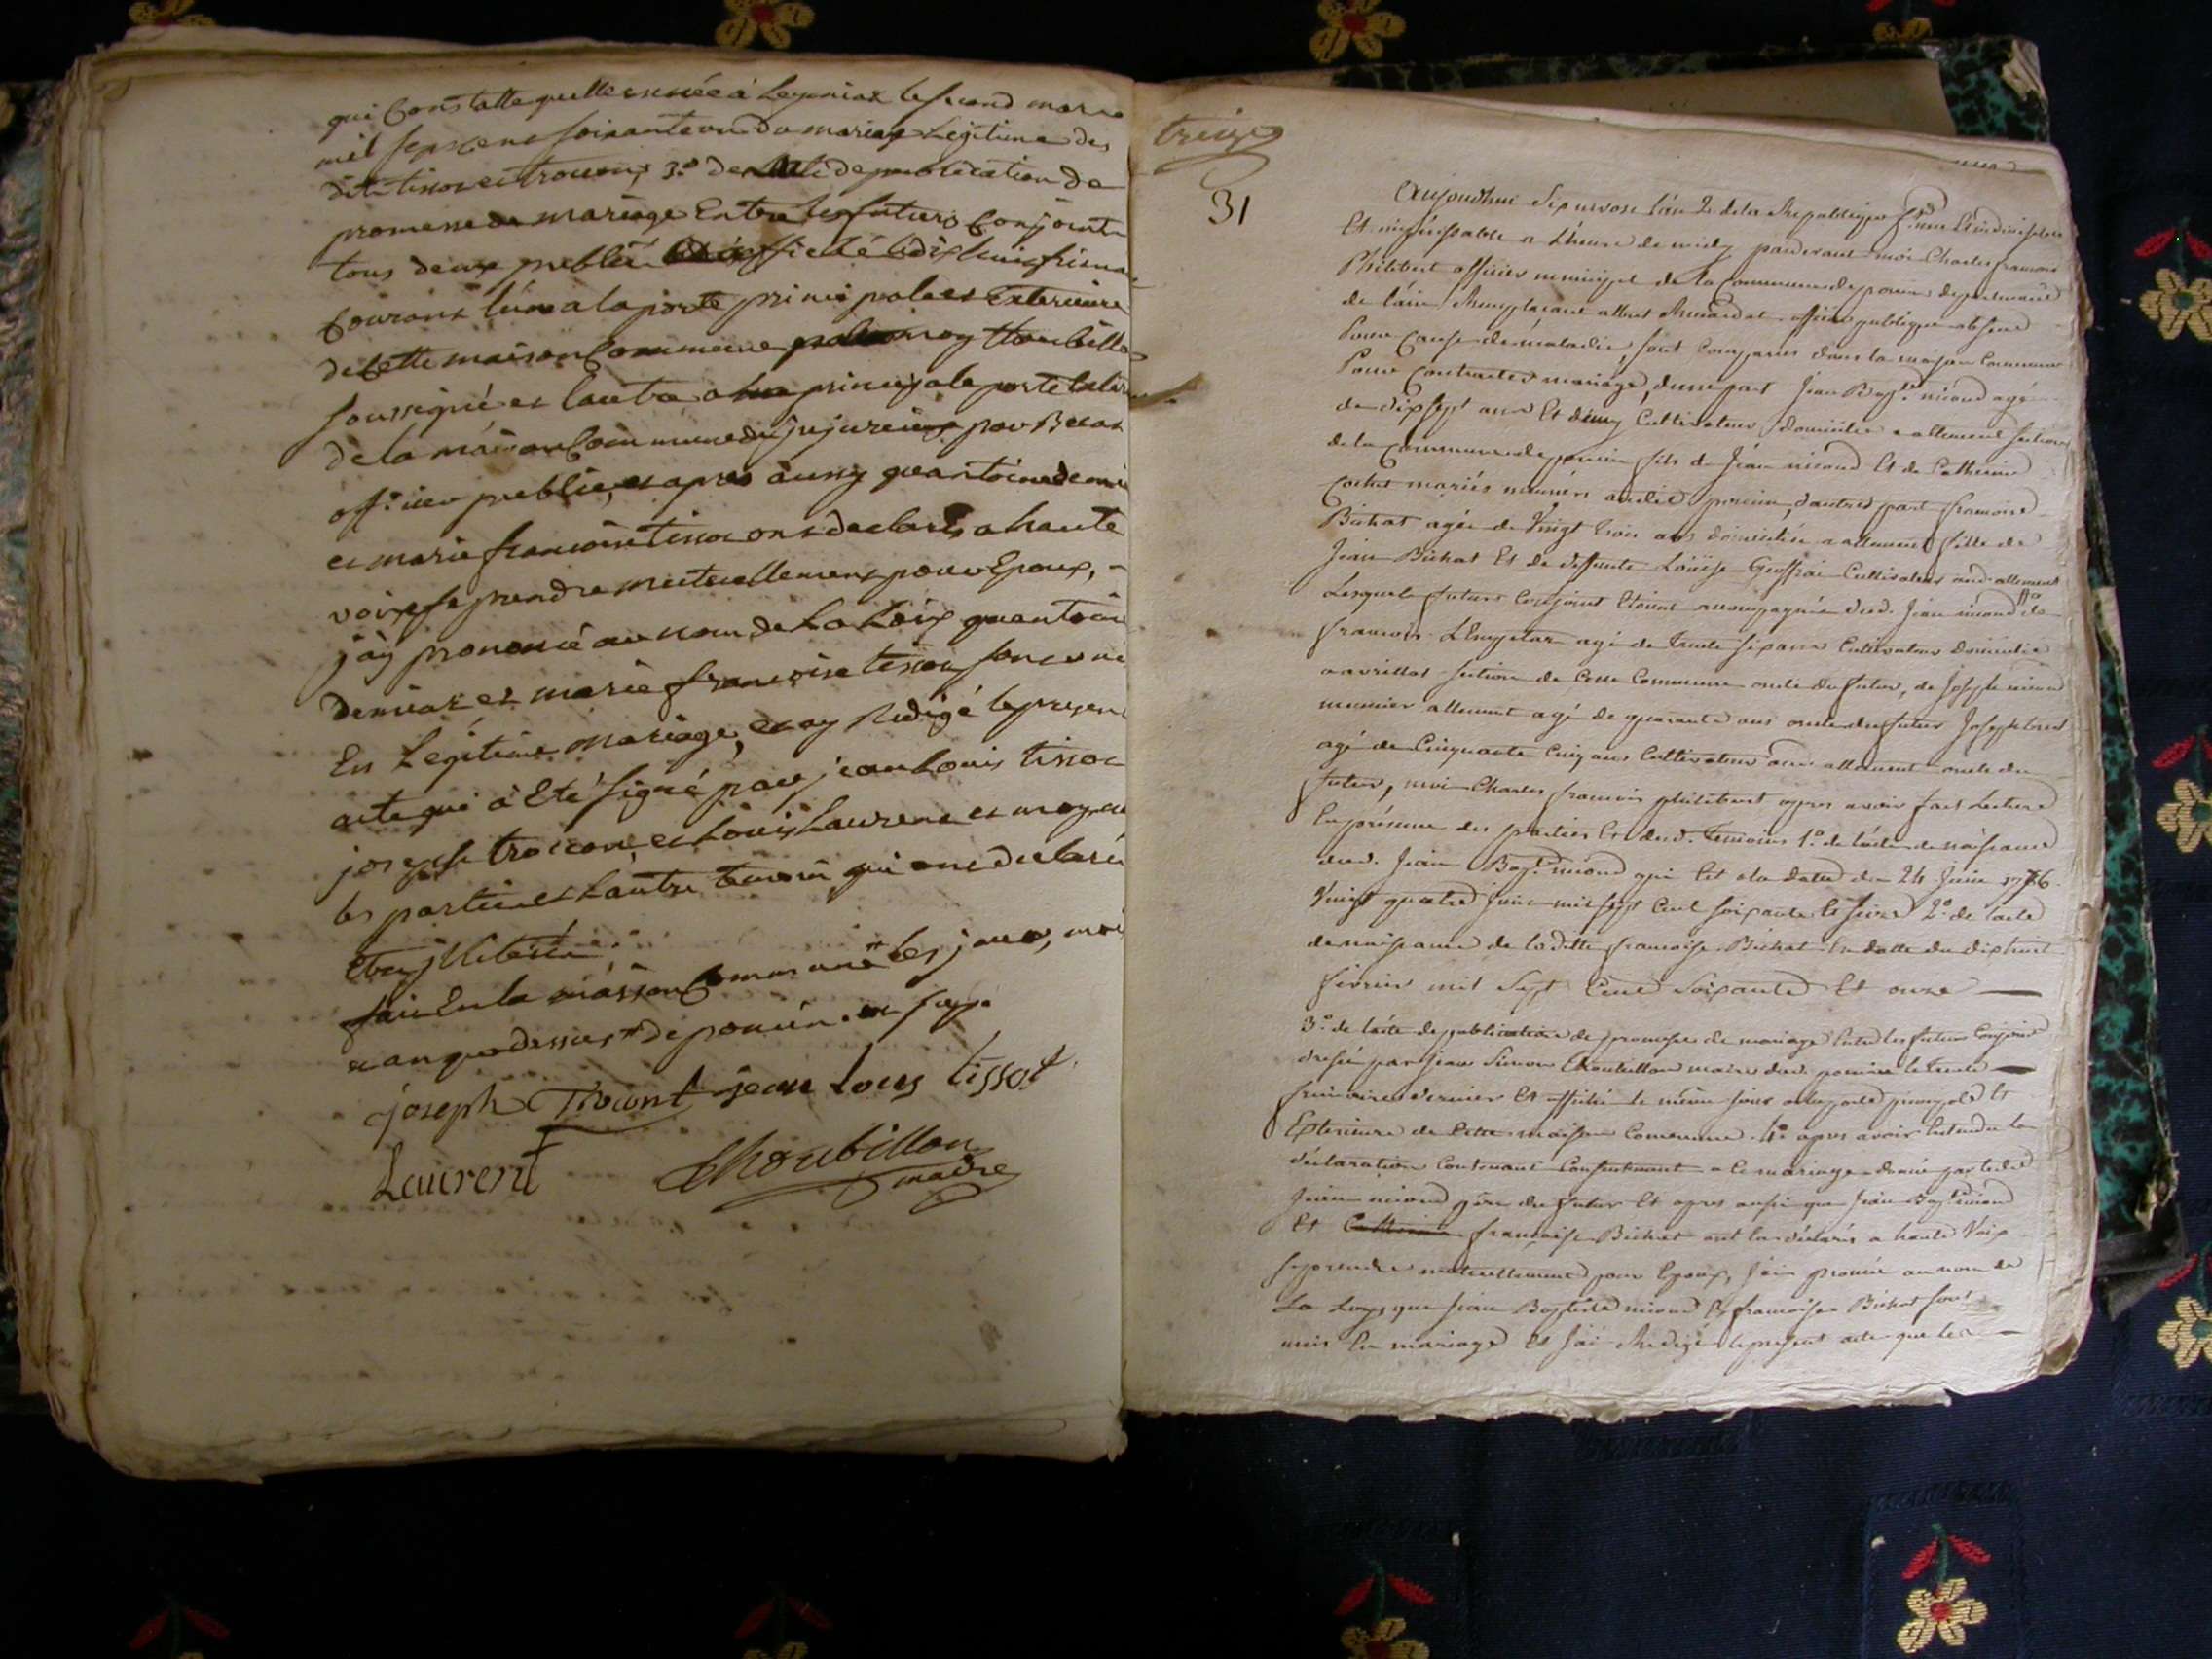 qui Constatte quelle est née à Leyniax le second mars
mil sept cent soixante un du mariage Legitime des
dits tissot et trocon, 3.º de de publication de
promesse de mariage Entre les futurs Conjoints
tous deux publié affiché le dix huit frimaire
Courant l'un a la porte principale et Exterieure
de Cette maison Commune par moy Choubillon
soussigné et l'autre a la principale porte
de la maison Commune de jujurieux par
officier public, et apres aussy quantoine demiaz
et marie francoise tissot ont declaré a haute
voix se prendre mutuellement pour Epoux,
j'ay prononcé au nom de La Loix quantoine
demiaz et marie francoise tissot sont unis
En Legitime mariage, et ay Redigé le present
acte qui à Eté signé par jean Louis tissot
joseph trocon, et Louis Laurent et moy
les parties et l'autre temoin qui ont declaré
Etre jlliteré
fait En la maison Commune les jour, mois
et an que dessus de poncin
joseph Trocont jean Louis tissot
Laurent Choubillon
maire
treize
31
Aujourdhui Six nivose l'an 2 de la Republique une Et indivisible
Et a L'heure de midy pardevant moi Charles francois
Philibert officier municipal de la Commune de poncin departement
de l'ain Remplaçant albert officier publique absent
Pour Cause de maladie, sont Comparus dans la maison Commune
Pour Contracter mariage, dune part Jean Bapt. niond agé
de dix sept ans Et demy Cultivateur domicilié a allement section
de la Commune de poncin fils de Jean niond Et de Catherine
Cochet mariés meuniers audit poncin, d'autre part francoise
Bichat agée de Vingt trois ans domiciliée a allement fille de
Jean Bichat Et de deffunte Louise Geoffrai Cultivateur aud. allement
Lesquels futurs Conjoint Etoient accompagnés dud. Jean niond de
francois agé de Trente six ans Cultivateur domicilié
a avrillat section de Cette Commune oncle du futur, de Joseph niond
meunier allement agé de quarante ans oncle du futur Joseph
agé de Cinquante Cinq ans Cultivateur aud. allement oncle du
futur, moi Charles francois philibert apres avoir fait Lecture
En présence des parties Et desd. Temoins 1.º de l'acte de naissance
dud. Jean Bapt. niond qui Est a la datte du 24 Juin 1776
Vingt quatre Juin mil sept Cent soixante Et seize 2.º de l'acte
de naissance de laditte francoise Bichat En datte du dix huit
fevrier mil sept Cent soixante Et onze
3.º de l'acte de publication de promesse de mariage Entre les futurs Conjoint
dressé par Jean Simon Choubillon maire dud. poncin le trente
frimaire dernier Et affiché le même jour a la porte principale Et
Exterieure de Cette maison Commune. 4.º apres avoir Entendu la
déclaration Contenant Consentement a Ce mariage donné par ledit
Jean niond père du futur Et apres aussi que Jean Bapt. niond
Et francoise Bichat ont déclarés a haute Voix
se prendre mutuellement pour Epoux, J'ai prononcé au nom de
La Loy, que Jean Baptiste niond Et francoise Bichat sont
unis En mariage Et J'ai Redigé le present acte que les